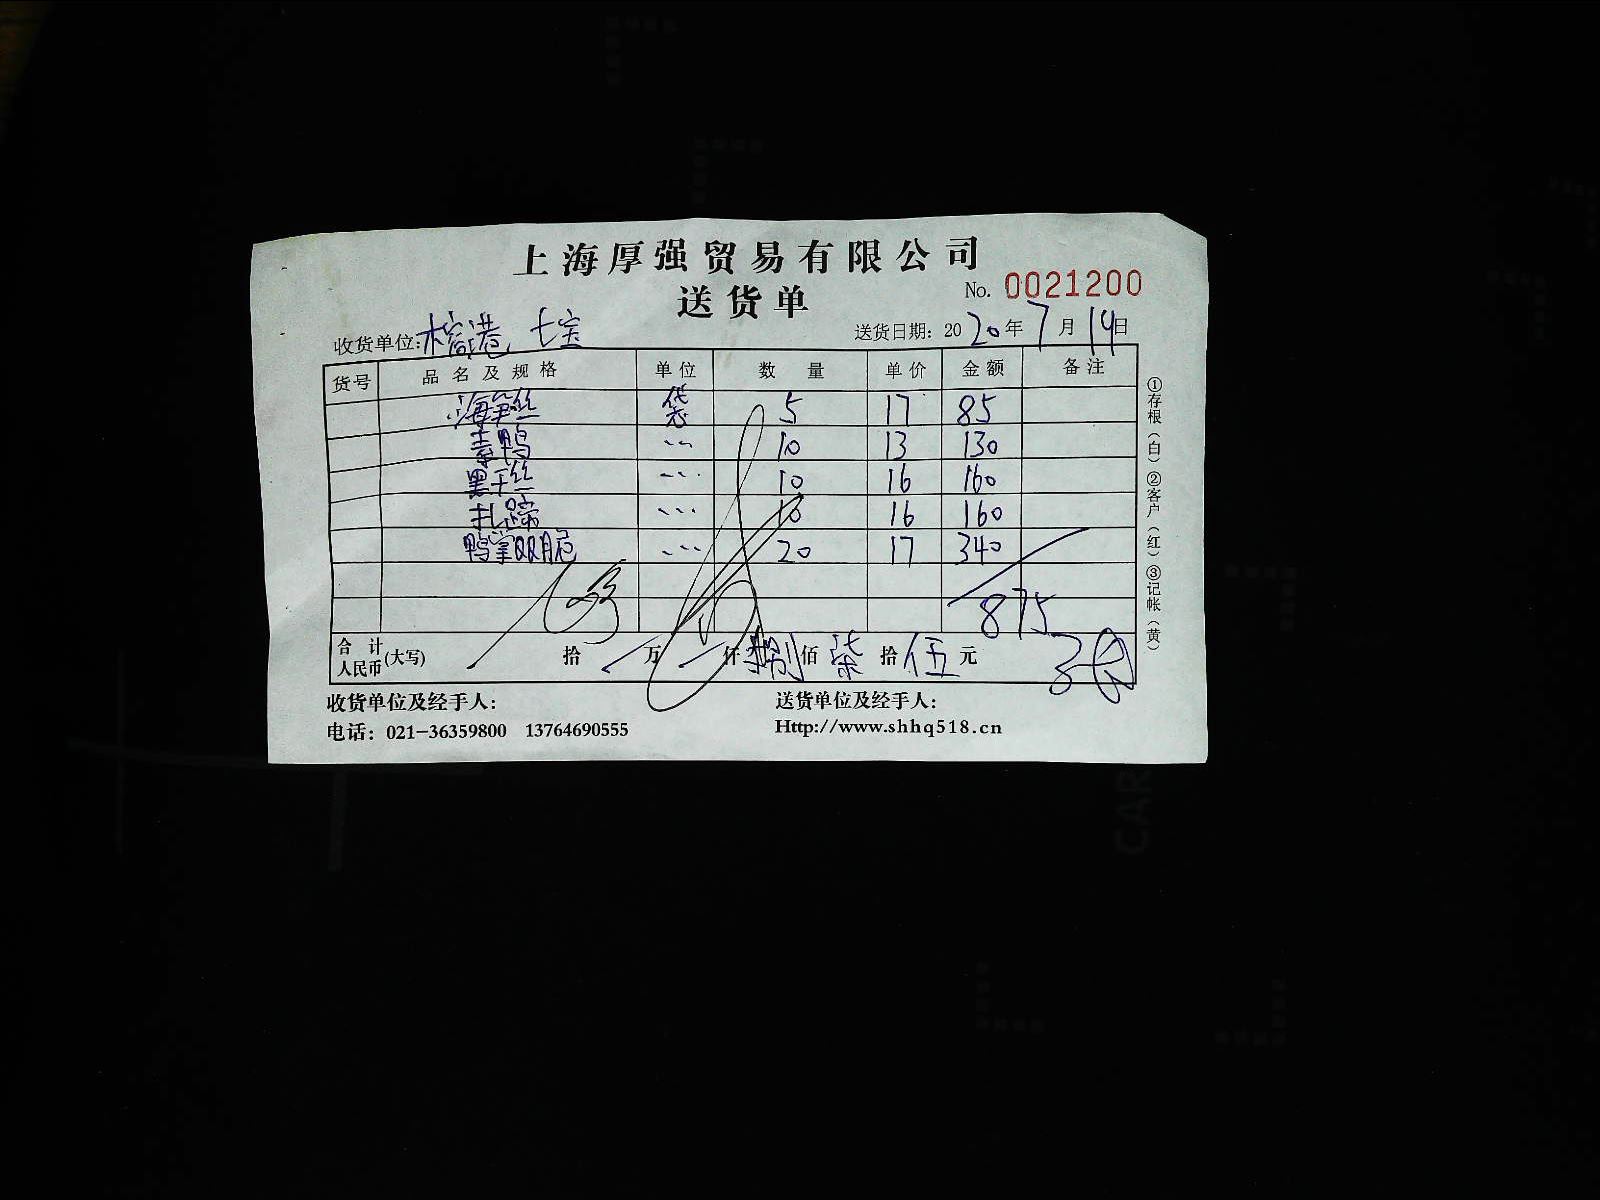 上海厚强贸易有限公司
送货单
No. 0021200
收货单位:榕港 七宝
送货日期: 2020年7月14日
货号 品名及规格 单位 数量 单价 金额 备注
海笋丝 袋 5 17 85
素鸭 〃 10 13 130
黑干丝 〃 10 16 160
扎蹄 〃 10 16 160
鸭掌双脆 〃 20 17 340
875
合计人民币(大写) 拾 / 万 / 仟 捌 佰 柒 拾 伍 元
收货单位及经手人:
送货单位及经手人:
电话: 021-36359800 13764690555
Http://www.shhq518.cn
①存根(白) ②客户(红) ③记帐(黄)